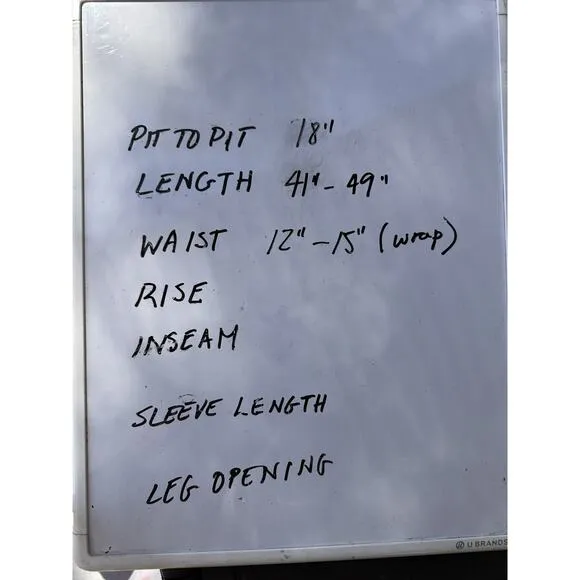 PIT TO PIT 18"
LENGTH 41" - 49"
WAIST 12" - 15" (wrap)
RISE
INSEAM
SLEEVE LENGTH
LEG OPENING
U BRANDS